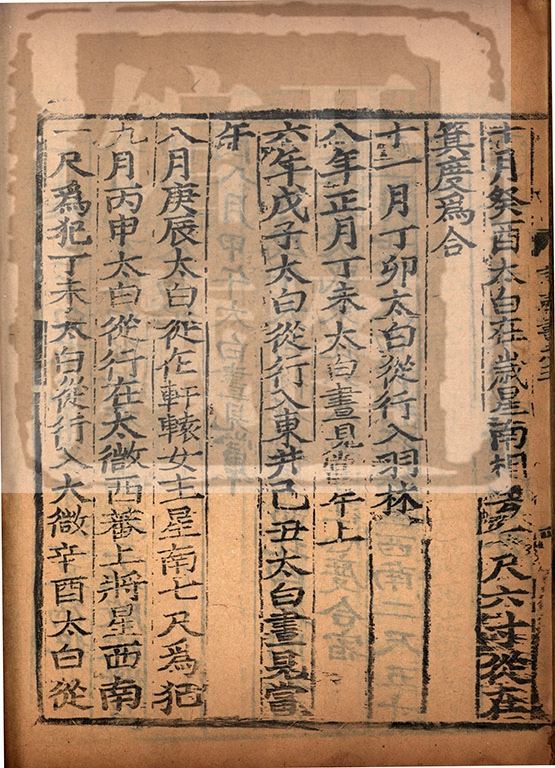 十月癸酉太白在歲星南相去一尺六寸從在
箕度爲合
十一月丁卯太白從行入羽林
八年正月丁未太白晝見當午上
六午戊子太白從行入東井己丑太白晝見當
午
八月庚辰太白從在軒轅女主星南七尺爲犯
九月丙申太白從行在太微西蕃上將星西南
一尺爲犯丁未太白從行入大微辛酉太白從